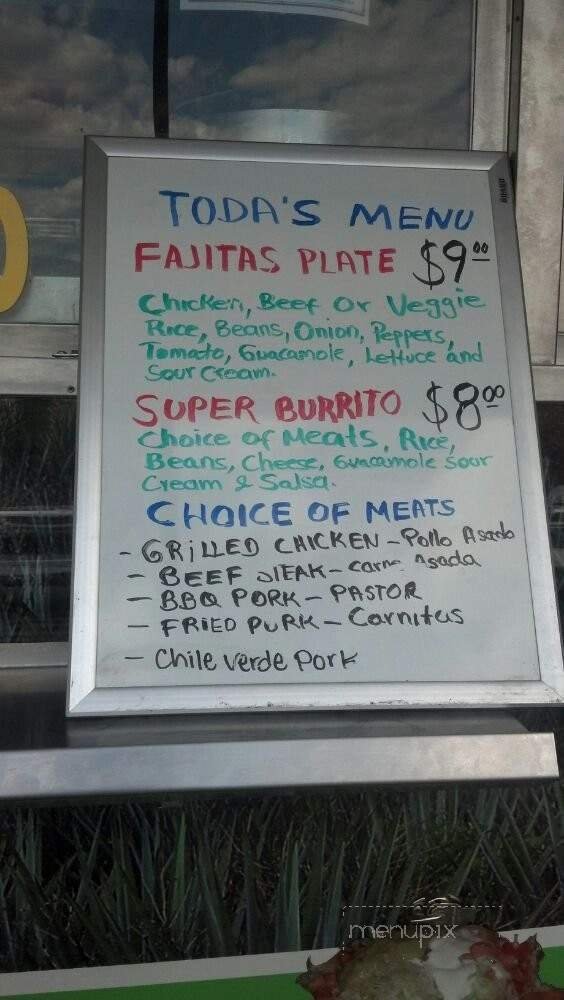 TODA'S MENU
FAJITAS PLATE $9.00
Chicken, Beef Or Veggie
Rice, Beans, Onion, Peppers,
Tomato, Guacamole, Lettuce and
Sour Cream.
SUPER BURRITO $8.00
Choice of Meats, Rice,
Beans, Cheese, Guacamole Sour
Cream & Salsa.
CHOICE OF MEATS
- GRILLED CHICKEN - Pollo Asado
- BEEF STEAK - Carne Asada
- BBQ PORK - PASTOR
- FRIED PORK - Carnitas
- Chile verde Pork
menupix